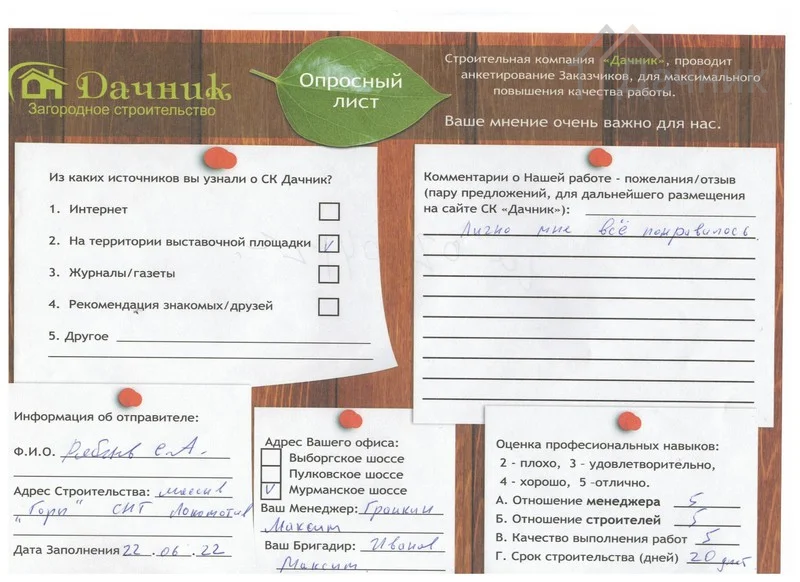 Дачник
Загородное строительство
Опросный
лист
Строительная компания «Дачник», проводит
анкетирование Заказчиков, для максимального
повышения качества работы.
Ваше мнение очень важно для нас.
ДАЧНИК
Из каких источников вы узнали о СК Дачник?
1. Интернет
2. На территории выставочной площадки V
3. Журналы/газеты
4. Рекомендация знакомых/друзей
5. Другое
Комментарии о Нашей работе - пожелания/отзыв
(пару предложений, для дальнейшего размещения
на сайте СК «Дачник»):
Лично мне всё понравилось.
Информация об отправителе:
Ф.И.О. С.А.
Адрес Строительства: массив
"Горы" СНТ Локомотив
Дата Заполнения 22.06.22
Адрес Вашего офиса:
Выборгское шоссе
Пулковское шоссе
V Мурманское шоссе
Ваш Менеджер:
Максим
Ваш Бригадир: Иванов
Максим
Оценка професиональных навыков:
2 - плохо, 3 - удовлетворительно,
4 - хорошо, 5 -отлично.
А. Отношение менеджера 5
Б. Отношение строителей 5
В. Качество выполнения работ 5
Г. Срок строительства (дней) 20 дней